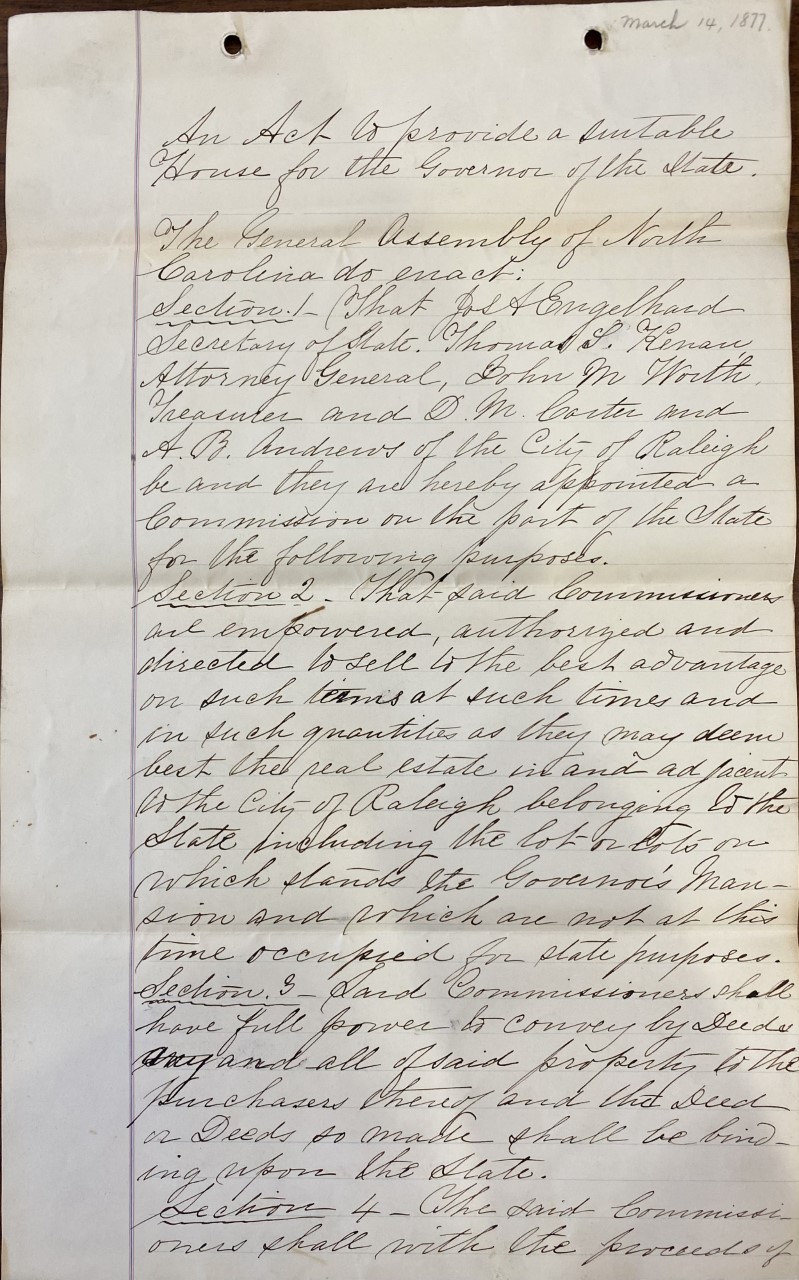 March 14, 1877.
An Act to provide a suitable
House for the Governor of the State.
The General Assembly of North
Carolina do enact:
Section. 1 - That Jos A Engelhard
Secretary of State. Thomas S. Kenan
Attorney General, John M Worth,
Treasurer and D. M. Carter and
A. B. Andrews of the City of Raleigh
be and they are hereby appointed a
Commission on the part of the State
for the following purposes.
Section 2 - That said Commissioners
are empowered, authorized and
directed to sell to the best advantage
on such terms at such times and
in such quantities as they may deem
best the real estate in and adjacent
to the City of Raleigh belonging to the
State including the lot or lots on
which stands the Governor's Man-
sion and which are not at this
time occupied for state purposes.
Section. 3 - Said Commissioners shall
have full power to convey by Deeds
any and all of said property to the
purchasers thereof and the Deed
or Deeds so made shall be bind-
ing upon the State.
Section 4 - The said Commissi-
oners shall with the proceeds of